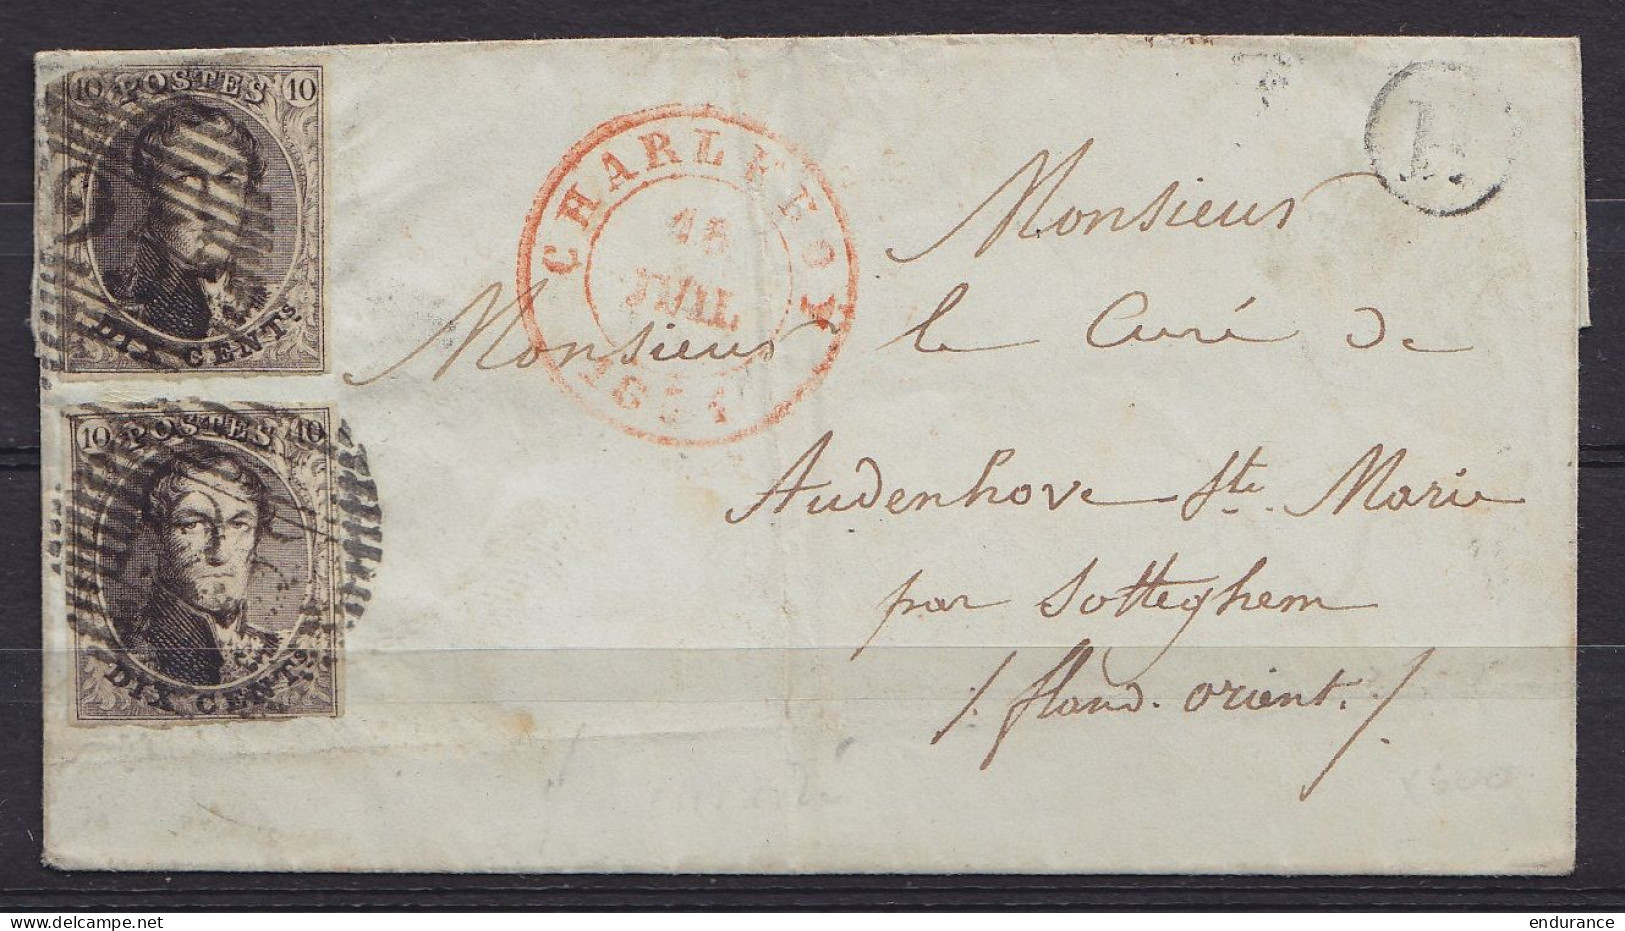 10 POSTES 10
DIX CENTS.
10 POSTES 10
DIX CENTS.
CHARLEROY
JUIL
Monsieur
Monsieur le Curé de
Audenhove Ste. Marie
par Sotteghem
/. fland. orient. /.
delcampe.net
endurance